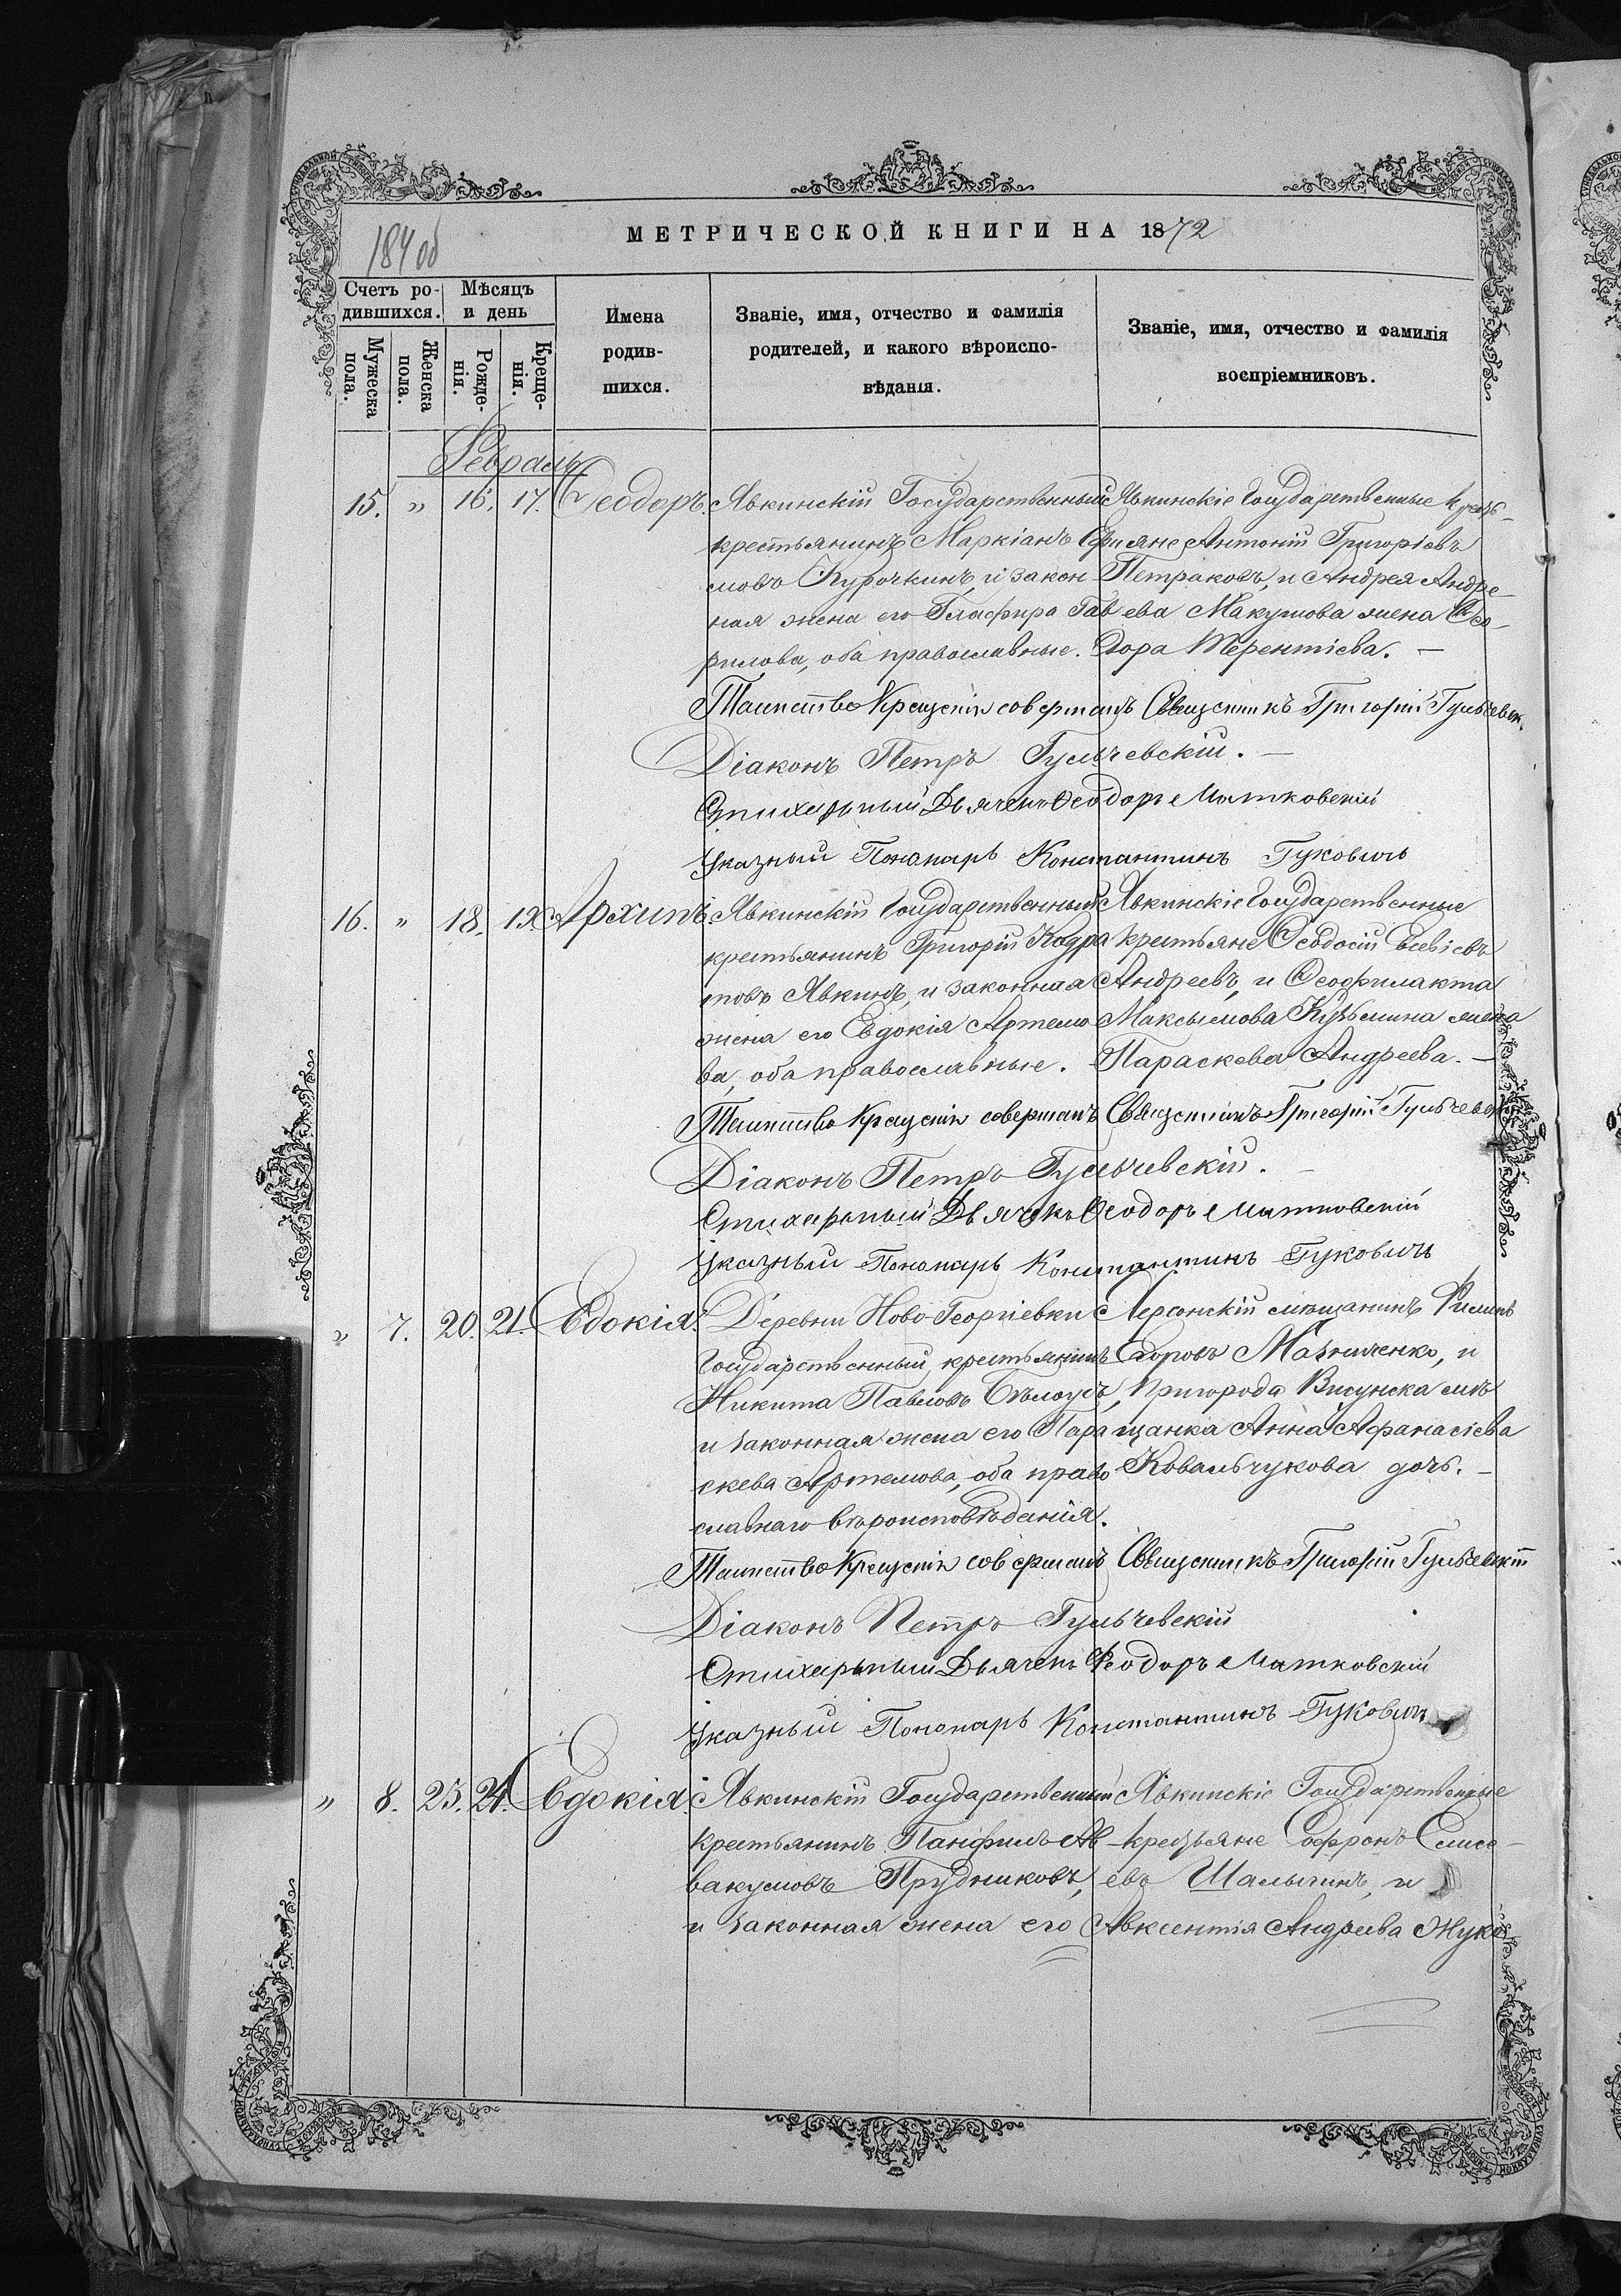 МЕТРИЧЕСКОЙ КНИГИ НА 1872
184 об
Счетъ ро-
дившихся.
Мѣсяцъ
и день
Мужеска
пола.
Женска
пола.
Рожде-
нія.
Креще-
нія.
Имена
родив-
шихся.
Званіе, имя, отчество и фамилія
родителей, и какого вѣроиспо-
вѣданія.
Званіе, имя, отчество и фамилія
воспріемниковъ.
Февраль
15. " 16. 17. Ѳеодоръ.
Явкинскій Государственный
крестьянинъ Маркіанъ Ефи
мовъ Курочкинъ, и закон
ная жена его Глафира Гав
рилова, оба православные.
Явкинскіе Государственные кресть-
яне Антоній Григоріевъ
Петраковъ, и Андрея Андре-
ева Макушова жена Ѳео-
дора Терентіева. —
Таинство Крещенія совершалъ Священникъ Григорій Гульчевск.
Діаконъ Петръ Гульчевскій. —
Стихарный Дьячекъ Ѳеодоръ Матковскій
Указный Пономарь Константинъ Гуковичъ
16. " 18. 19. Архипъ.
Явкинскій Государственный
крестьянинъ Григорій Кодра
товъ Явкинъ, и законная
жена его Евдокія Артемо
ва, оба православные.
Явкинскіе Государственные
крестьяне Ѳеодосій Евсѣевъ
Андреевъ, и Ѳеофилакта
Максымова Кузьмина жена
Параскева Андреева. —
Таинство Крещенія совершалъ Священникъ Григорій Гульчевск
Діаконъ Петръ Гульчевскій. —
Стихарный Дьячекъ Ѳеодоръ Матковскій
Указный Пономарь Константинъ Гуковичъ
" 7. 20. 21. Евдокія.
Деревни Ново Георгіевки
Государственный крестьянинъ
Никита Павловъ Бѣлоусъ,
и законная жена его Пара
скева Артемова, оба право
славнаго вѣроисповѣданія.
Херсонскій мѣщанинъ Филипъ
Егоровъ Мазниченко, и
пригорода Висунска мѣ
щанка Анна Афанасіева
Ковальчукова дочь. —
Таинство Крещенія совершалъ Священникъ Григорій Гульчевскій
Діаконъ Петръ Гульчевскій
Стихарный Дьячекъ Ѳеодоръ Матковскій
Указный Пономарь Константинъ Гуковичъ
" 8. 23. 24. Евдокія.
Явкинскій Государственный
крестьянинъ Панфилъ Ав
вакумовъ Прудниковъ,
и законная жена его
Явкинскіе Государственные
крестьяне Софронъ Елисе-
евъ Шалыгинъ, и
Авксентія Андреева Жуко